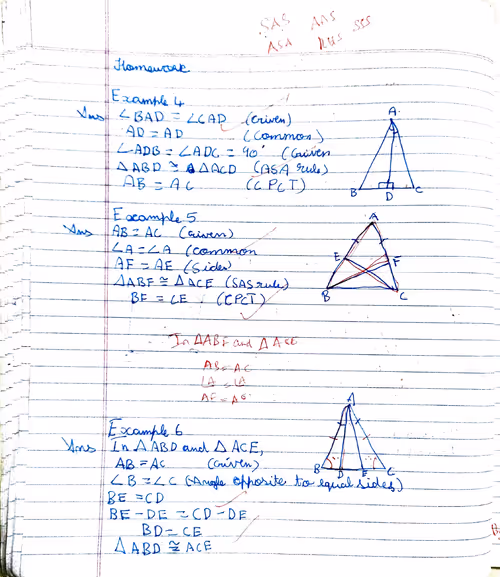 SAS AAS
ASA RHS SSS
Homework
Example 4
Ans ∠BAD = ∠CAD (Given)
AD = AD (Common)
∠ADB = ∠ADC = 90° (Given
△ABD ≅ △ACD (ASA rule)
AB = AC (CPCT)
A
B D C
Example 5
Ans AB = AC (Given)
∠A = ∠A (common
AF = AE (Sides)
△ABF ≅ △ACE (SAS rule)
BF = CE . (CPCT)
A
E F
B C
In △ABF and △ACE
AB = AC
∠A = ∠A
AF = AE
Example 6
Ans In △ABD and △ACE,
AB = AC (Given)
∠B = ∠C (Angle opposite to equal sides)
BE = CD
BE - DE = CD - DE
BD = CE
△ABD ≅ ACE
A
B D E C